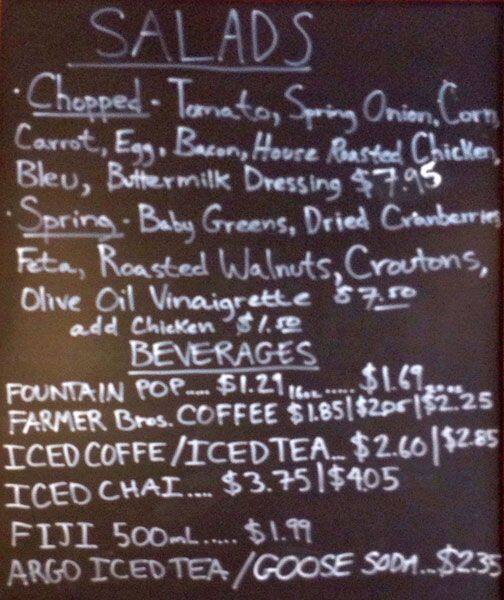 SALADS
· Chopped - Tomato, Spring Onion, Corn
Carrot, Egg, Bacon, House Roasted Chicken,
Bleu, Buttermilk Dressing $7.95
· Spring - Baby Greens, Dried Cranberries
Feta, Roasted Walnuts, Croutons,
Olive Oil Vinaigrette $7.50
add Chicken $1.50
BEVERAGES
FOUNTAIN POP.... $1.29 16oz..... $1.69
FARMER Bros. COFFEE $1.85|$2.05|$2.25
ICED COFFE/ICED TEA.. $2.60|$2.85
ICED CHAI.... $3.75|$4.05
FIJI 500mL..... $1.99
ARGO ICED TEA/GOOSE SODA...$2.35